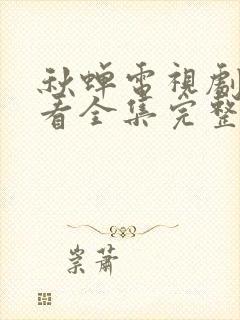 秋蝉電視劇
看全集完整
崇蕭